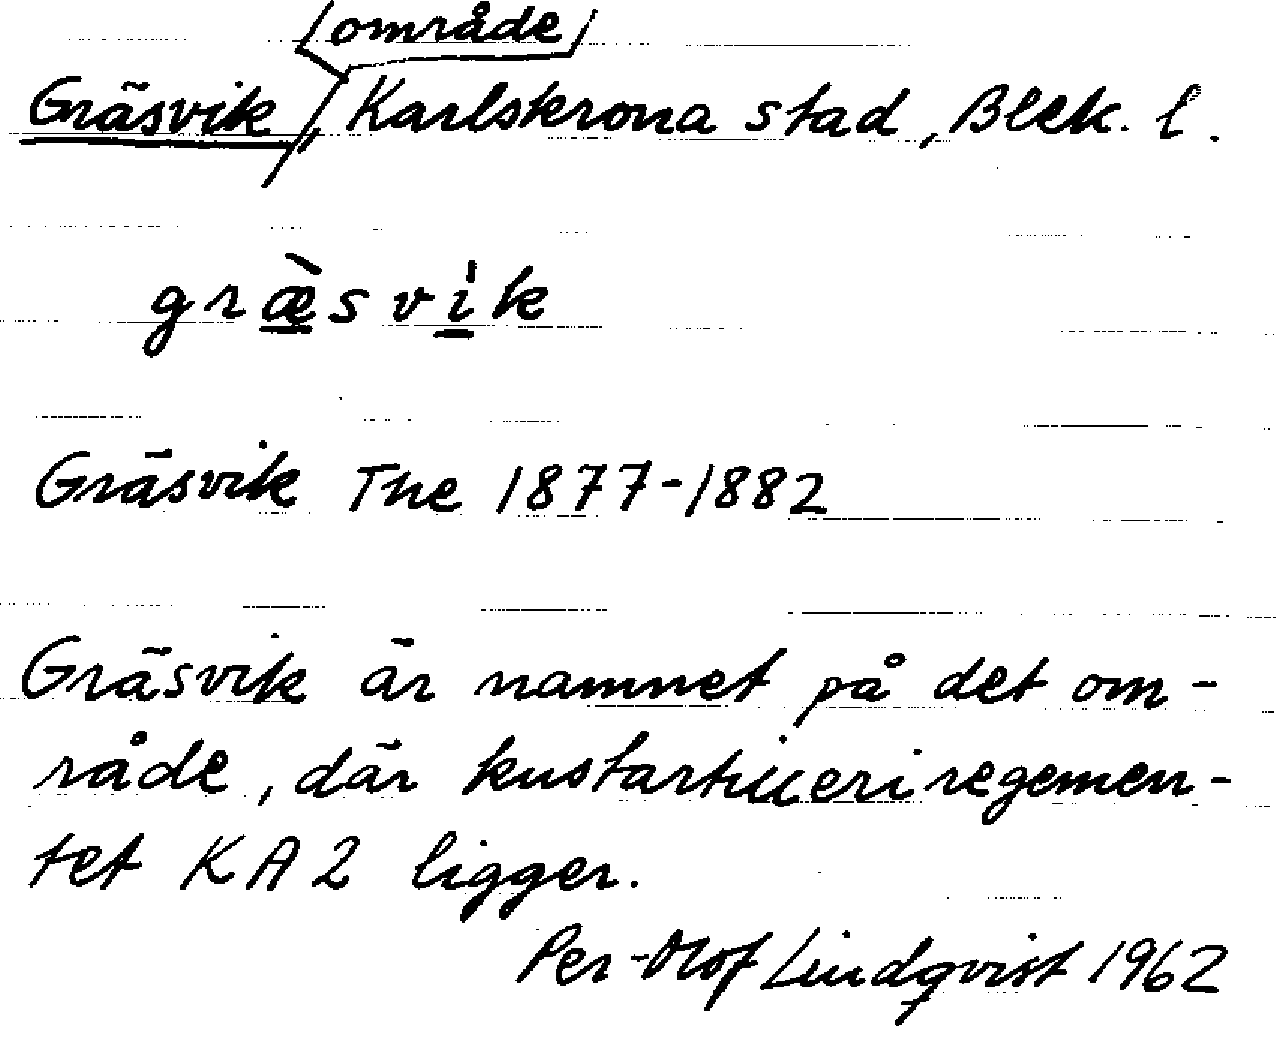 område
Gräsvik / Karlskrona stad, Blek. l.
græ̀svik
Gräsvik The 1877-1882
Gräsvik är namnet på det om-
råde, där kustartilleriregemen-
tet KA 2 ligger.
Per-Olof Lindqvist 1962